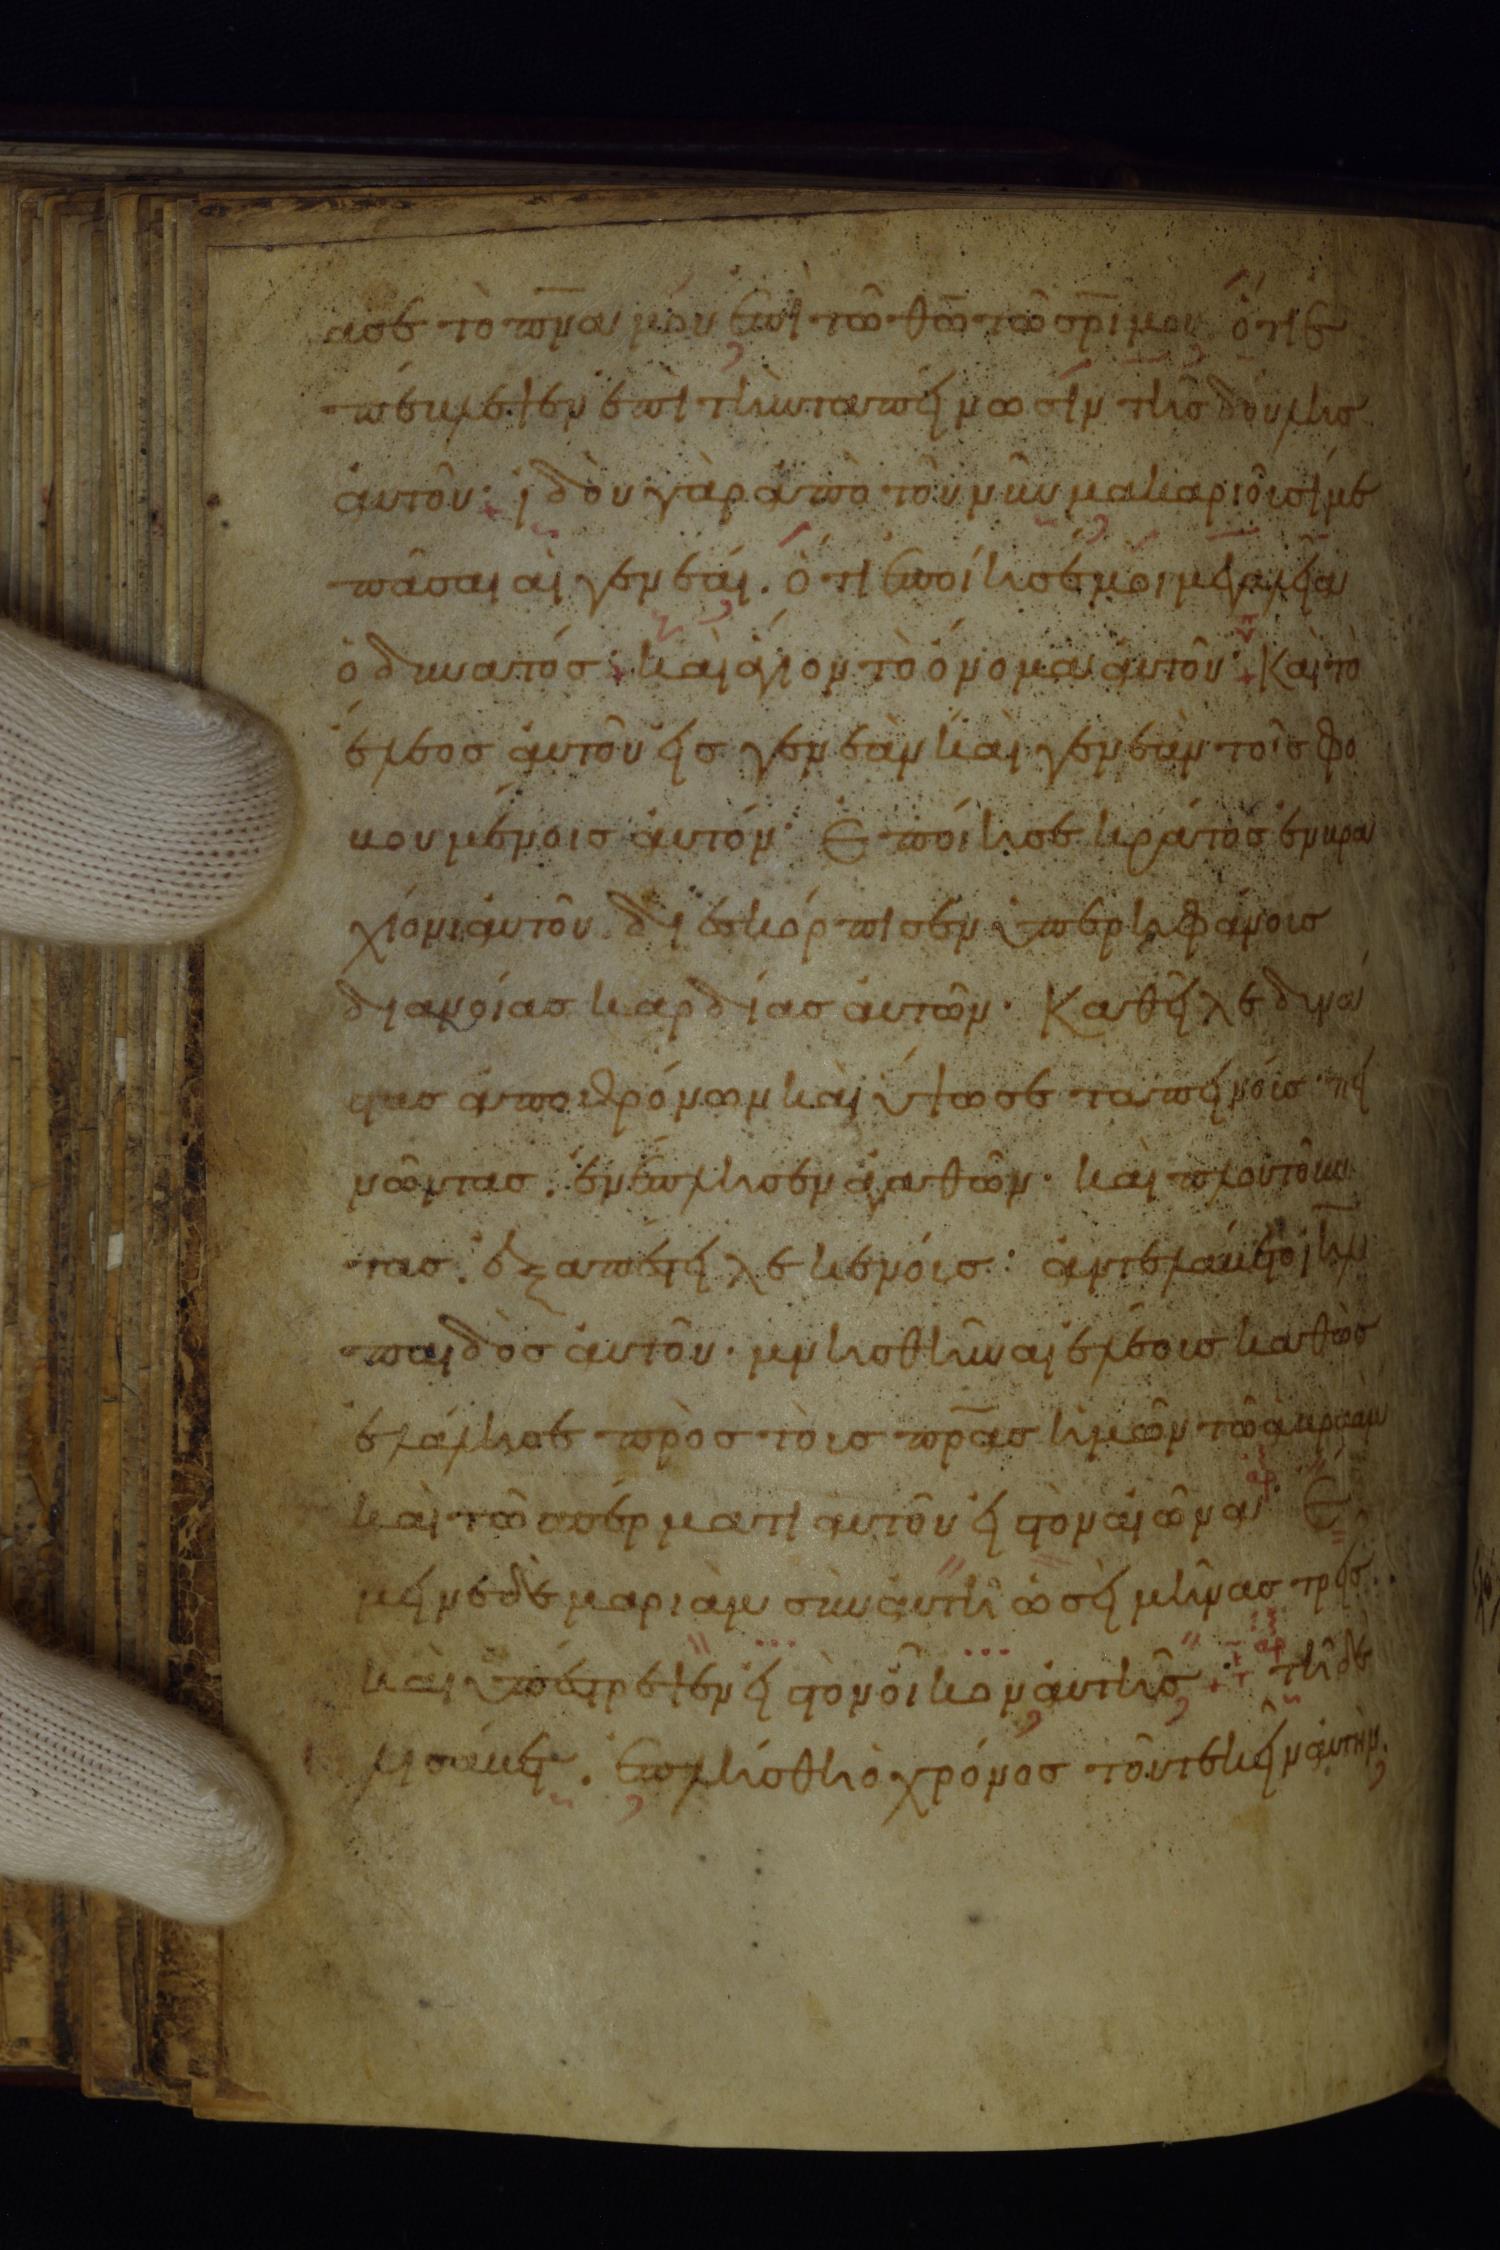 ασε τὸ πνα μου ἐπὶ τῶ θω τῶ σρι μου ὅτι ἐ
πέβλεψεν ἐπὶ τὴν ταπείνωσιν τῆς δούλης
ἀυτοῦ· ἰδοὺ γὰρ ἀπὸ τοῦ νῦν μακαριοῦσί με
πᾶσαι αἱ γενεάι. ὅτι ἐποίησέ μοι μεγαλεῖα
ὁ δυνατός· κὰι ἅγιον τὸ ὄνομα ἀυτοῦ· Κὰι τὸ
ἔλεος ἀυτοῦ εἰς γενεὰν κὰι γενεὰν τοῖς φο
βουμένοις ἀυτόν· Ἐποίησε κράτος ἐν βρα
χίονι ἀυτοῦ. διεσκόρπισεν ὑπερηφάνους
διανοίας καρδίας ἀυτῶν· Καθεῖλε δυνά
στας ἀπο θρόνων κὰι ὕψωσε ταπεινόυς· πει
νῶντας. ἐνέπλησεν ἀγαθῶν· κὰι πλουτοῦν
τας. ἐξαπέστειλε κενόυς· ἀντελάβετο ιηλ
παιδὸς ἀυτοῦ· μνησθῆναι ἐλέους καθὼς
ἐλάλησε πρὸς τὸυς πρας ἡμῶν τῶ ἀβραὰμ
κὰι τῶ σπέρματι ἀυτοῦ εἰς τὸν αἰῶνα· Ἔ
μεινε δὲ μαριὰμ σὺν ἀυτῆ ὡσὲι μῆνας τρεῖς.
κὰι ὑπέστρεψεν εἰς τὸν οἶκον ἀυτῆς· τῆ δὲ
ἐλισάβετ. ἐπλήσθη ὁ χρόνος τοῦ τεκεῖν ἀυτὴν,